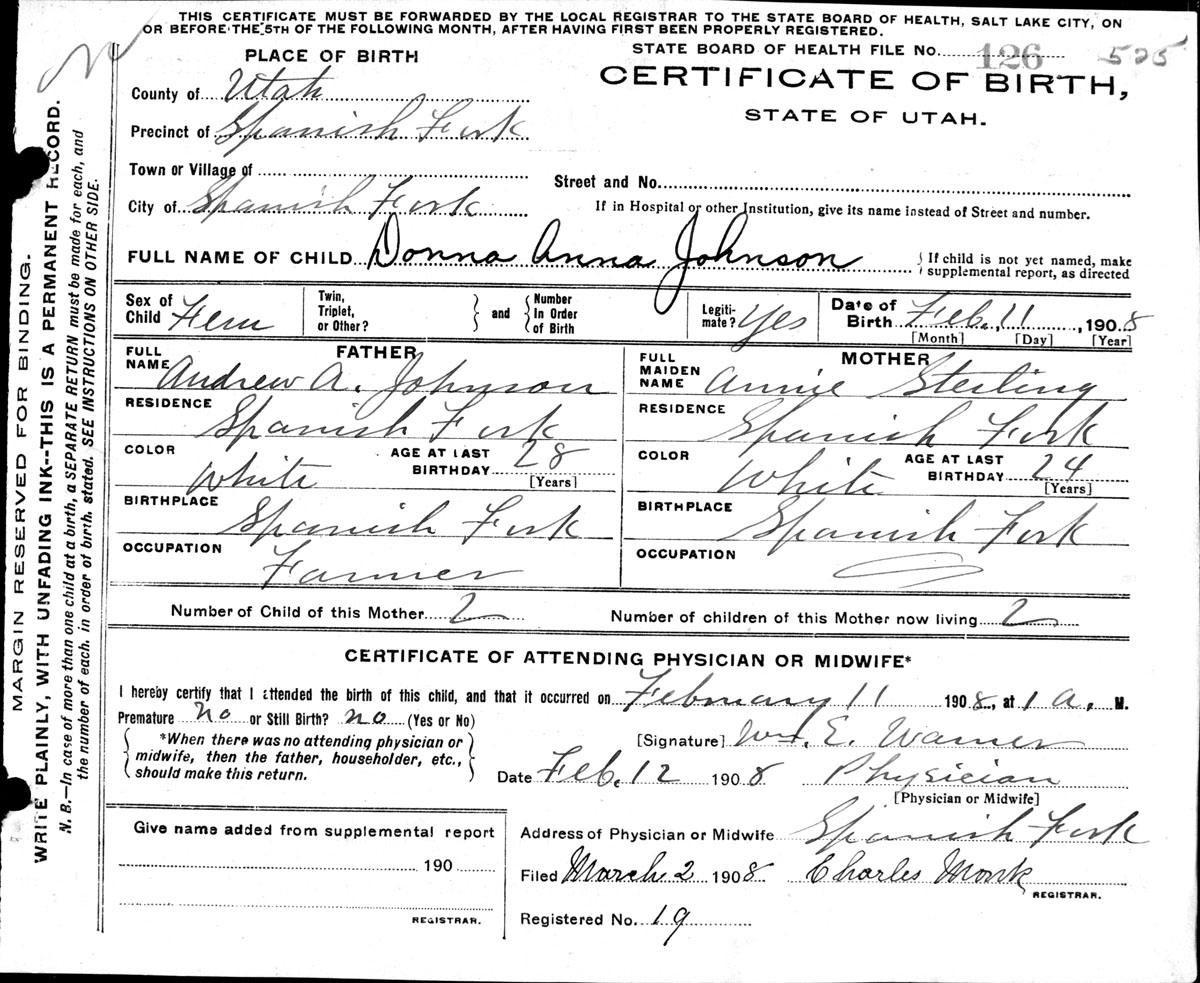 THIS CERTIFICATE MUST BE FORWARDED BY THE LOCAL REGISTRAR TO THE STATE BOARD OF HEALTH, SALT LAKE CITY, ON
OR BEFORE THE 5TH OF THE FOLLOWING MONTH, AFTER HAVING FIRST BEEN PROPERLY REGISTERED.
PLACE OF BIRTH
STATE BOARD OF HEALTH FILE No. 126 525
CERTIFICATE OF BIRTH,
STATE OF UTAH.
County of Utah
Precinct of Spanish Fork
Town or Village of
Street and No.
City of Spanish Fork
If in Hospital or other Institution, give its name instead of Street and number.
FULL NAME OF CHILD Donna Anna Johnson
{ If child is not yet named, make
supplemental report, as directed
Sex of Child Fem
Twin, Triplet, or Other?
and
Number In Order of Birth
Legiti-mate? Yes
Date of Birth Feb. 11, 1908
[Month] [Day] [Year]
FATHER
FULL NAME Andrew A. Johnson
RESIDENCE Spanish Fork
COLOR White
AGE AT LAST BIRTHDAY 28
[Years]
BIRTHPLACE Spanish Fork
OCCUPATION Farmer
MOTHER
FULL MAIDEN NAME Annie Sterling
RESIDENCE Spanish Fork
COLOR White
AGE AT LAST BIRTHDAY 24
[Years]
BIRTHPLACE Spanish Fork
OCCUPATION
Number of Child of this Mother 2
Number of children of this Mother now living 2
CERTIFICATE OF ATTENDING PHYSICIAN OR MIDWIFE*
I hereby certify that I attended the birth of this child, and that it occurred on February 11 1908, at 1 a. M.
Premature no or Still Birth? no (Yes or No)
*When there was no attending physician or
midwife, then the father, householder, etc.,
should make this return.
[Signature] Wm. E. Warner
Date Feb. 12 1908 Physician
[Physician or Midwife]
Give name added from supplemental report
190
REGISTRAR.
Address of Physician or Midwife Spanish Fork
Filed March 2 1908 Charles Monk
REGISTRAR.
Registered No. 19
MARGIN RESERVED FOR BINDING.
WRITE PLAINLY, WITH UNFADING INK--THIS IS A PERMANENT RECORD.
N. B.—In case of more than one child at a birth, a SEPARATE RETURN must be made for each, and
the number of each, in order of birth, stated. SEE INSTRUCTIONS ON OTHER SIDE.